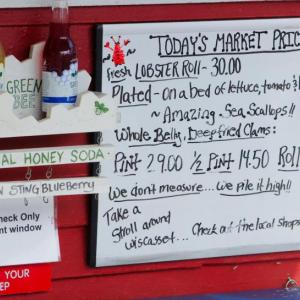 TODAY'S MARKET PRIC
Fresh LOBSTER ROLL - 30.00
Plated - on a bed of lettuce, tomato
~ Amazing Sea Scallops!!
Whole Belly, Deepfried Clams:
PINT 29.00 ½ PINT 14.50 ROLL
We don't measure... we pile it high!!
Take a
Stroll around
Wiscasset...
Check out the local Shops
GREEN
BEE
AL HONEY SODA
N STING BLUEBERRY
heck Only
nt window
YOUR
EP